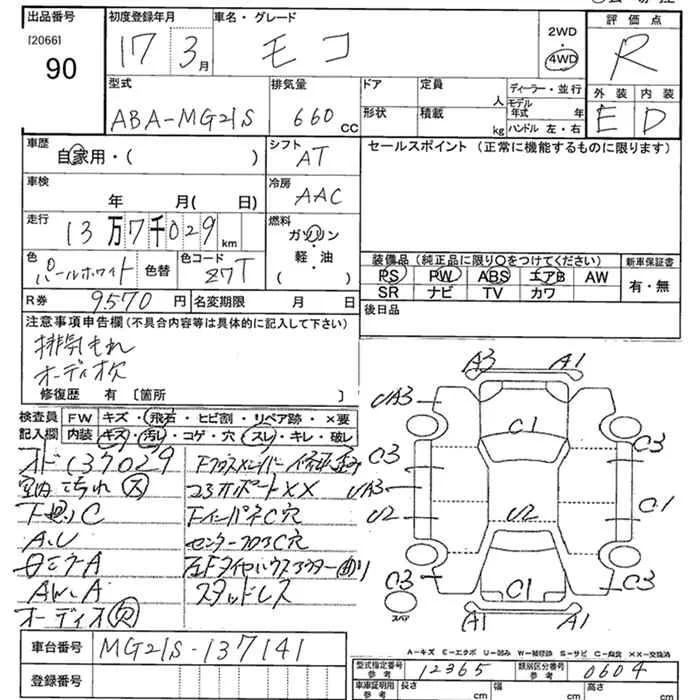 出品番号 初度登録年月 車名・グレード 評価点
[2066]
90
17 3月 モコ 2WD・4WD R
型式 排気量 ドア 定員 人 ディーラー・並行
モデル年式 年 外装 内装
ABA-MG21S 660cc 形状 積載 kg ハンドル 左・右 E D
車歴 シフト セールスポイント (正常に機能するものに限ります)
自家用・( ) AT
車検 冷房
年 月( 日) AAC
走行 燃料
13万7千029km ガソリン・軽油( )
色 色替 色コード 装備品 (純正品に限り○をつけてください) 新車保証書
パールホワイト Z7T PS PW ABS エアB AW 有・無
SR ナビ TV カワ
R券 9570円 名変期限 月 日 後日品
注意事項申告欄(不具合内容等は具体的に記入して下さい)
排気もれ
オーディオ欠
修復歴 有〔箇所 〕
検査員記入欄 FW キズ・飛石・ヒビ割・リペア跡・×要
内装 キズ・汚レ・コゲ・穴・スレ・キレ・破レ
137029
室内
C
A.U
A
AW.A
オーディオ欠
コアサポートXX
FインパネC穴
センターフロアC穴
スタッドレス
A3 A1
UA3 C1 C3
C3
UA3 C1
U2 U2
C3 C1 C3
スペア A1 A1
A-キズ E-エクボ U-凹み W-補修跡 S-サビ C-腐食 XX-交換済
車台番号 MG21S-137141
登録番号
型式指定番号 参考 12365 類別区分番号 参考 0604
車庫証明用 参考 長さ cm 幅 cm 高さ cm